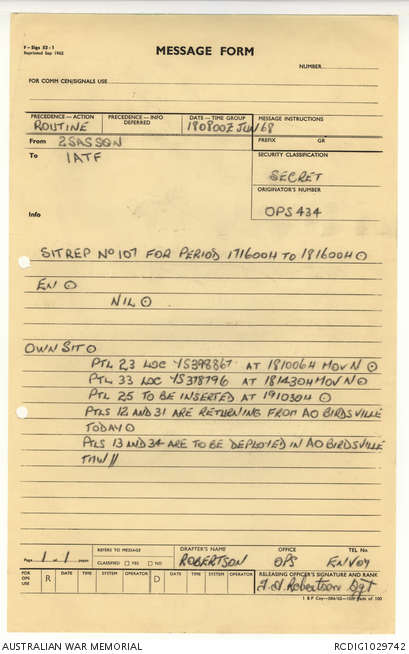 F - Sigs 52 - 1
Reprinted Sep 1965
MESSAGE FORM
NUMBER
FOR COMM CEN/SIGNALS USE
PRECEDENCE—ACTION
ROUTINE
PRECEDENCE—INFO
DEFERRED
DATE—TIME GROUP
180800Z JUN 68
MESSAGE INSTRUCTIONS
From 2SASSQN
PREFIX GR
To 1ATF
SECURITY CLASSIFICATION
SECRET
ORIGINATOR'S NUMBER
Info
OPS 434
SITREP NO 107 FOR PERIOD 171600H TO 181600H ⊙
EN ⊙
NIL ⊙
OWN SIT ⊙
PTL 23 LOC YS398867 AT 181006H MOV N ⊙
PTL 33 LOC YS378796 AT 181430H MOV N ⊙
PTL 25 TO BE INSERTED AT 191030H ⊙
PTLS 12 AND 31 ARE RETURNING FROM AO BIRDSVILLE
TODAY ⊙
PTLS 13 AND 34 ARE TO BE DEPLOYED IN AO BIRDSVILLE
TMW //
Page 1 of 1 pages
REFERS TO MESSAGE
CLASSIFIED □ YES □ NO
DRAFTER'S NAME
ROBERTSON
OFFICE
OPS
TEL No
ENVOY
FOR OPS USE
R DATE TIME SYSTEM OPERATOR D DATE TIME SYSTEM OPERATOR
RELEASING OFFICER'S SIGNATURE AND RANK
Robertson Sgt
AUSTRALIAN WAR MEMORIAL
RCDIG1029742